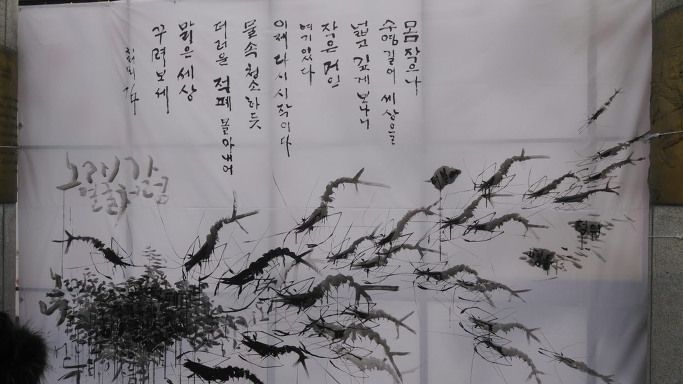 몸 작으나
수염 길어 세상을
넓고 깊게 보나니
작은 거인
여기 있다
이제 다시 시작이다
물속 청소하듯
더러운 적폐 몰아내어
맑은 세상
꾸려보세